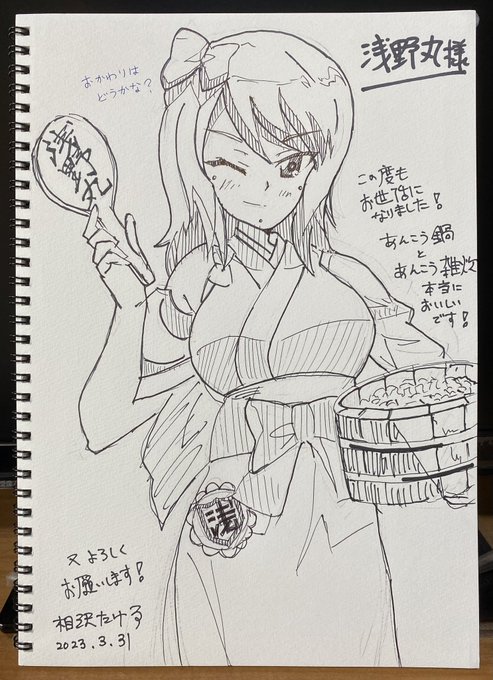 浅野丸様
おかわりは
どうかな?
浅野丸
この度も
お世話に
なりました!
あんこう鍋
と
あんこう雑炊
本当に
おいしい
です!
浅
又よろしく
お願いします!
相沢たける
2023.3.31